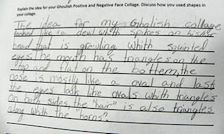 Explain the idea for your Ghoulish Positive and Negative Face Collage. Discuss how you used shapes in
your collage.
The idea for my Ghoulish collage
looked like to deal with spikes on his
head that is growling with squinted
eyes. The mouth has triangles on the
top and on the bottem, the
nose is mostly like a oval and last
the eyes ask like ovals with triangles
on both sides the "hair" is also triangles
along with the horns?